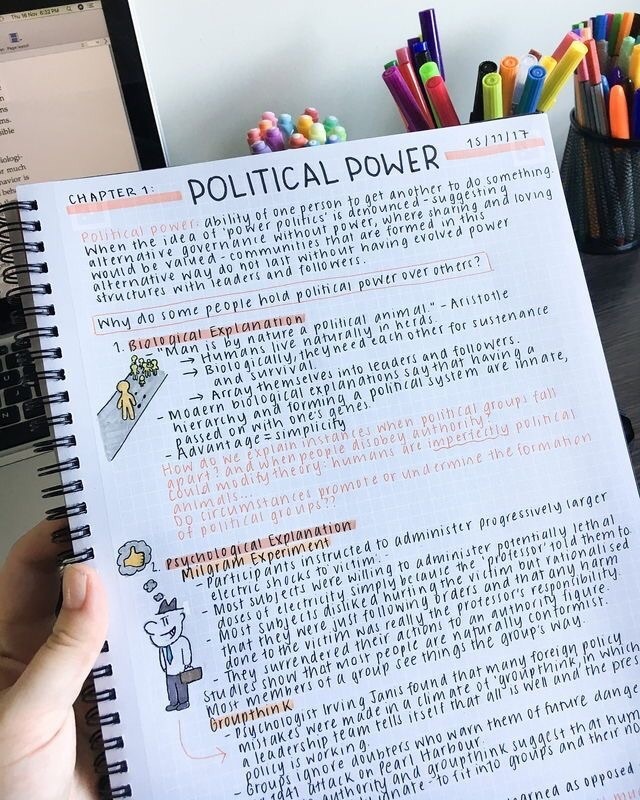 Thu 16 Nov 6:32 PM
CHAPTER 1:
POLITICAL POWER
15/11/17
Political power: ability of one person to get another to do something.
When the idea of 'power politics' is denounced - suggesting
alternative governance without power, where sharing and loving
would be valued - communities that are formed in this
alternative way do not last without having evolved power
structures with leaders and followers.
Why do some people hold political power over others?
1. Biological Explanation
- "Man is by nature a political animal" - Aristotle
→ Humans live naturally in herds.
→ Biologically, they need each other for sustenance
and survival.
→ Array themselves into leaders and followers.
- Modern biological explanations say that having a
hierarchy and forming a political system are innate,
passed on with one's genes.
- Advantage = simplicity
How do we explain instances when political groups fall
apart? and when people disobey authority?
Could modify theory: humans are imperfectly political
animals...
Do circumstances promote or undermine the formation
of political groups??
2. Psychological Explanation
Milgram Experiment
- Participants instructed to administer progressively larger
electric shocks to victim.
- Most subjects were willing to administer potentially lethal
doses of electricity simply because the 'professor' told them to
- Most subjects disliked hurting the victim but rationalised
that they were just following orders and that any harm
done to the victim was really the professor's responsibility.
- They surrendered their actions to an authority figure.
Studies show that most people are naturally conformist.
Most members of a group see things the group's way.
Groupthink
- Psychologist Irving Janis found that many foreign policy
mistakes were made in a climate of 'groupthink', in which
a leadership team tells itself that all is well and the pres
policy is working.
- Groups ignore doubters who warn them of future dange
1941 attack on Pearl Harbour.
authority and groupthink suggest that hum
innate - to fit into groups and their no
earned as opposed